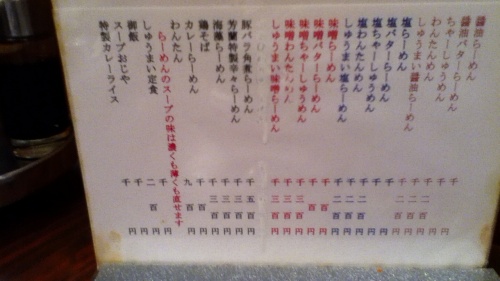 醤油らーめん 千円
醤油バターらーめん 千円
ちゃーしゅうめん 千二百円
わんたんめん 千二百円
しゅうまい醤油らーめん 千二百円
塩らーめん 千円
塩バターらーめん 千円
塩ちゃーしゅうめん 千二百円
塩わんたんめん 千二百円
しゅうまい塩らーめん 千二百円
味噌らーめん 千百円
味噌バターらーめん 千百円
味噌ちゃーしゅうめん 千三百円
味噌わんたんめん 千三百円
しゅうまい味噌らーめん 千三百円
豚バラ角煮らーめん 千五百円
芳蘭特製辛々らーめん 千三百円
海藻らーめん 千三百円
鶏そば 千百円
カレーらーめん 九百円
わんたん 千円
らーめんのスープの味は濃くも薄くも直せます
しゅうまい定食 千円
御飯 二百円
スープおじや 千円
特製カレーライス 千円